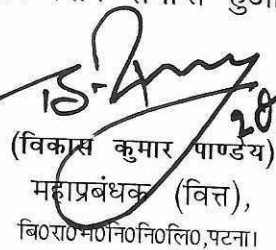 हुआ
(विकास कुमार पाण्डेय)
महाप्रबंधक (वित्त),
बि०रा०भ०नि०नि०लि०,पटना।